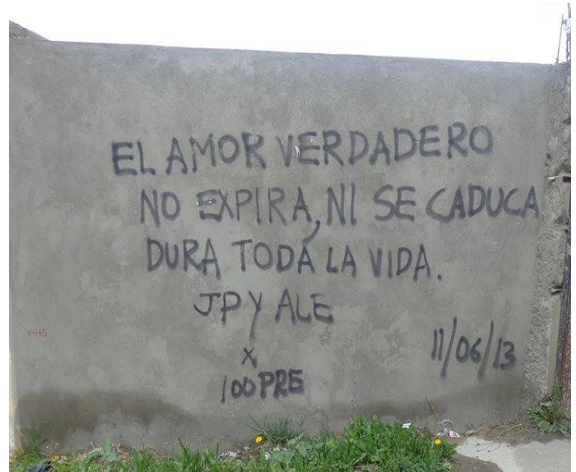 EL AMOR VERDADERO
NO EXPIRA, NI SE CADUCA
DURA TODA LA VIDA.
JP Y ALE
X
100PRE
11/06/13